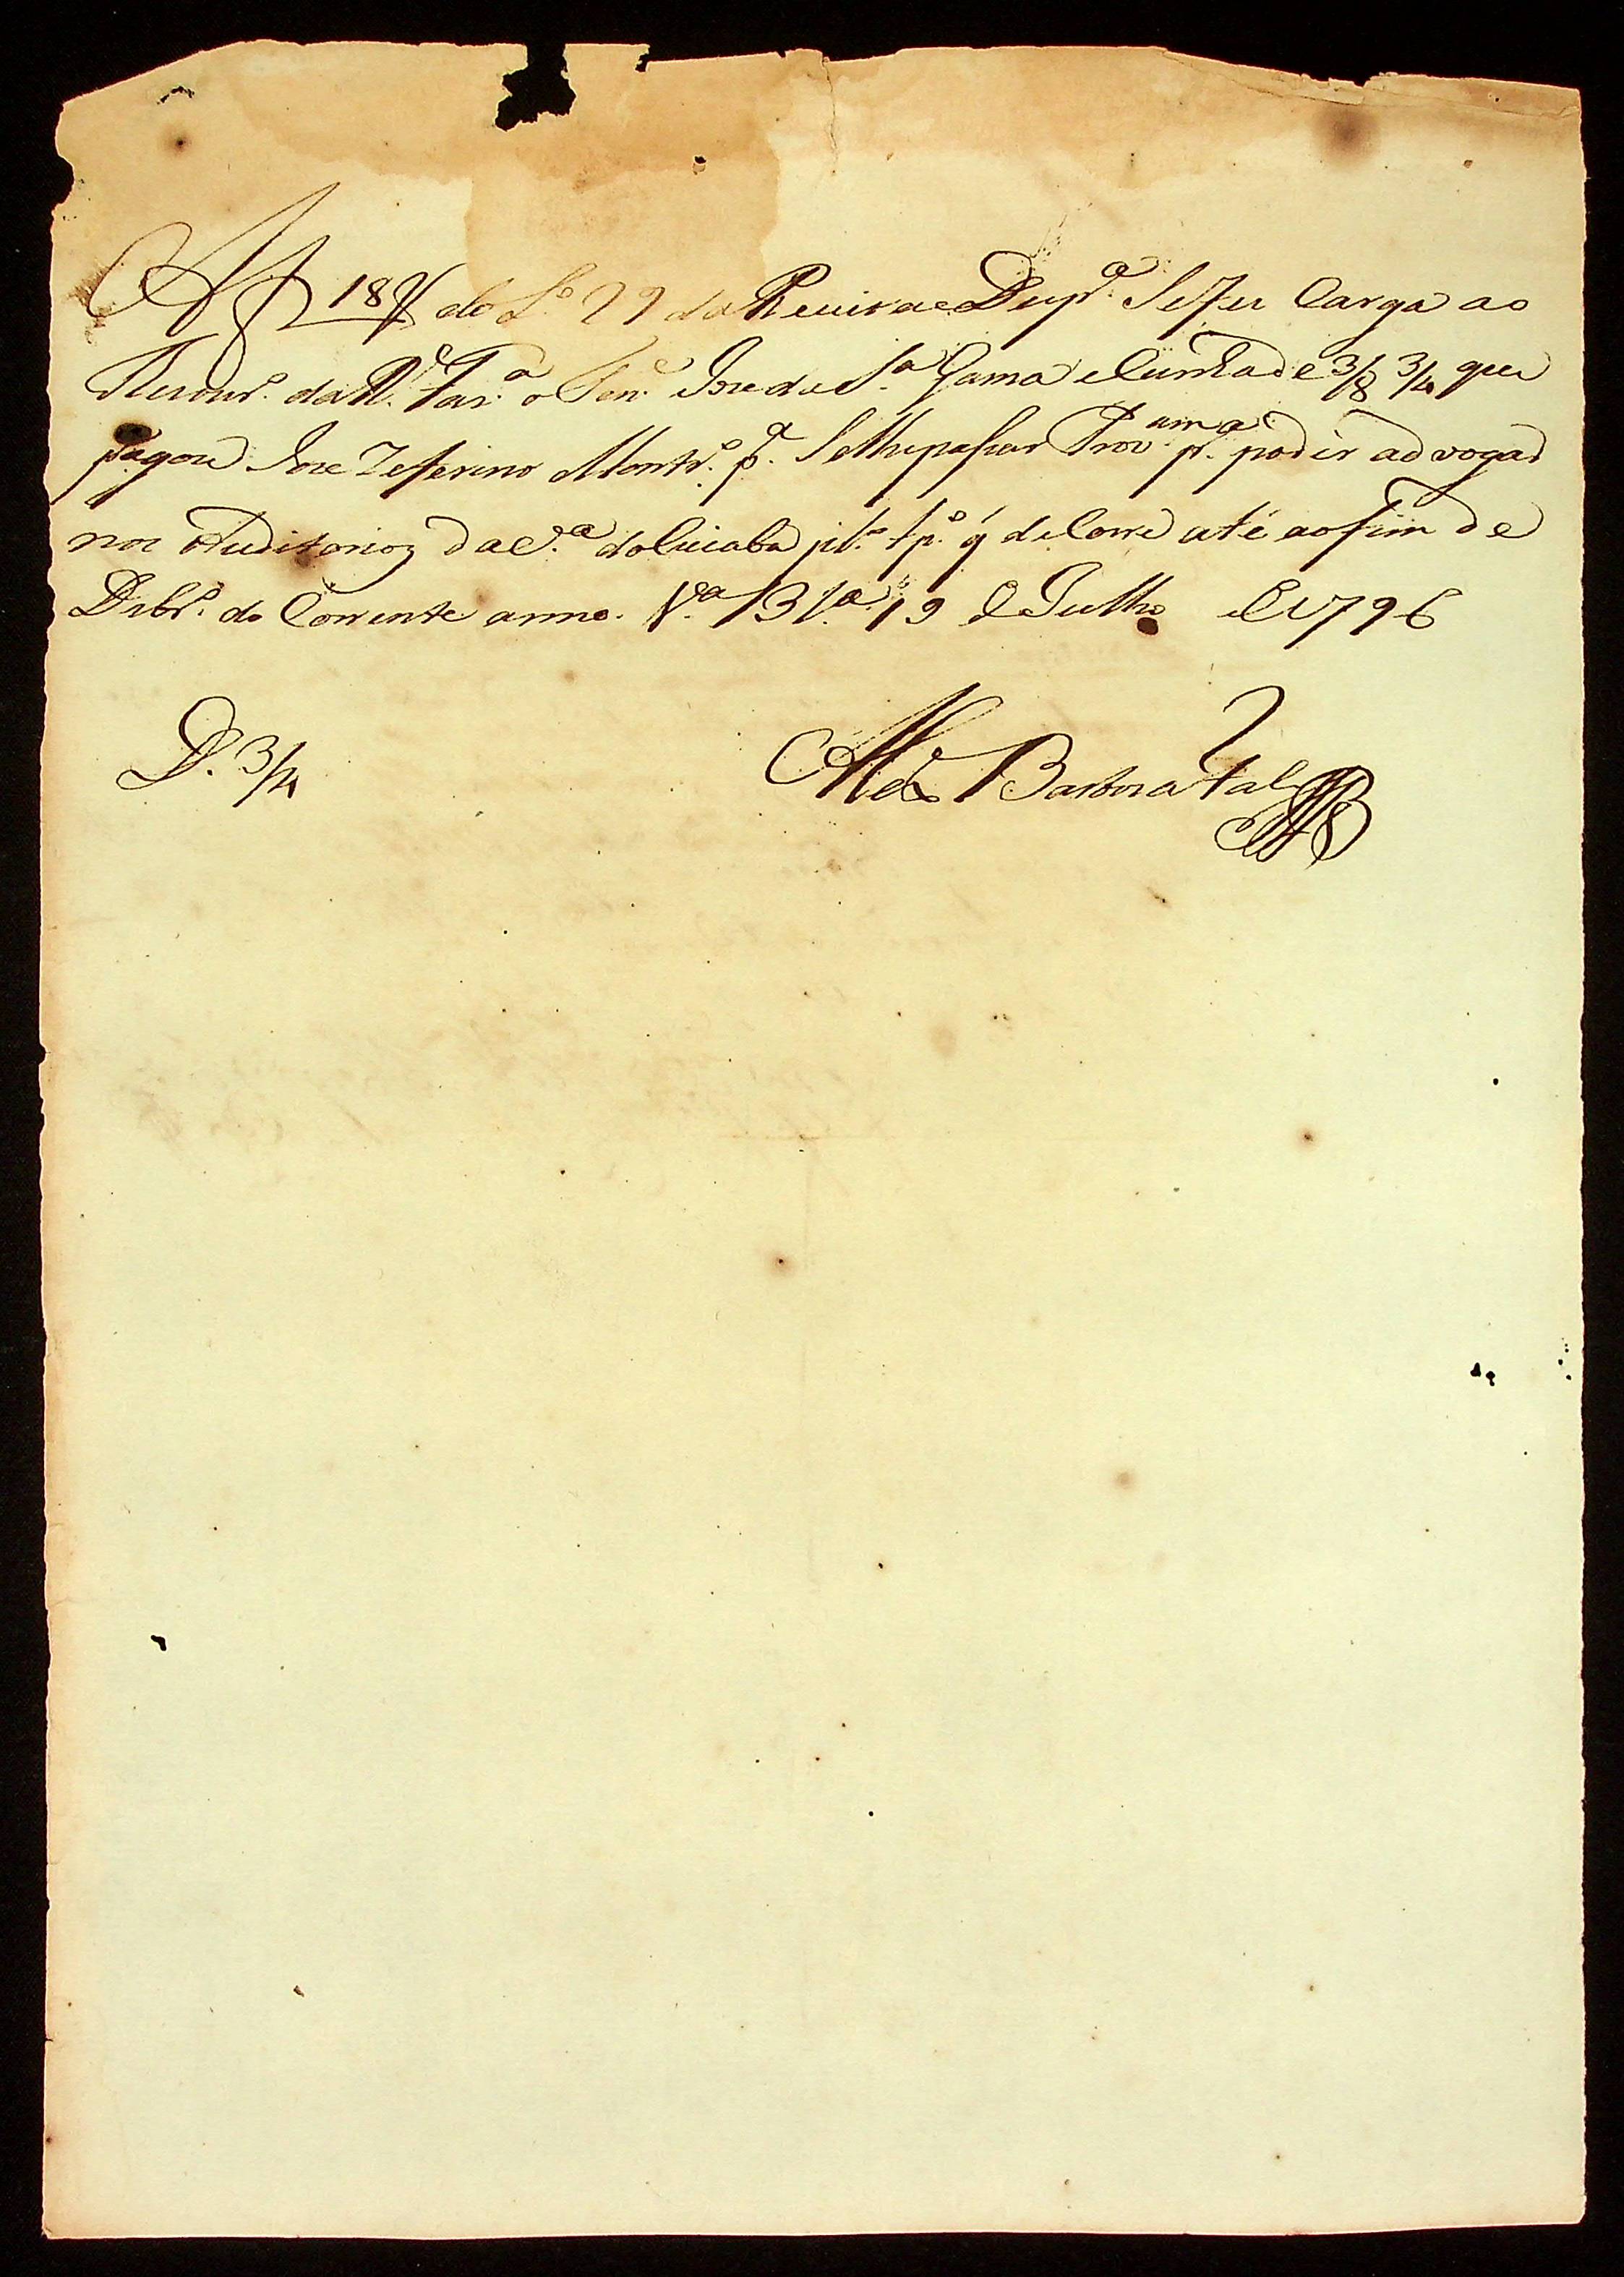 Af 187 do L.º 29 da Receita e Desp.ª Se fez Carga ao
Thezour.º da R.l Faz.ª o Ten.e Joze da S.ª Gama e Cunha de 3/8 3/4 que
pagou Joze Zeferino Montr.º p.ª Se lhe pasar Prov.am p.ª poder advogar
nos Auditorios da V.ª do Cuiabá pl.º tp.º q̃ de Corre até ao fim de
Dzbr.º do Corrente anno. V.ª B.ª 19 de Julho de 1796
D. 3/4
M.el Barboza